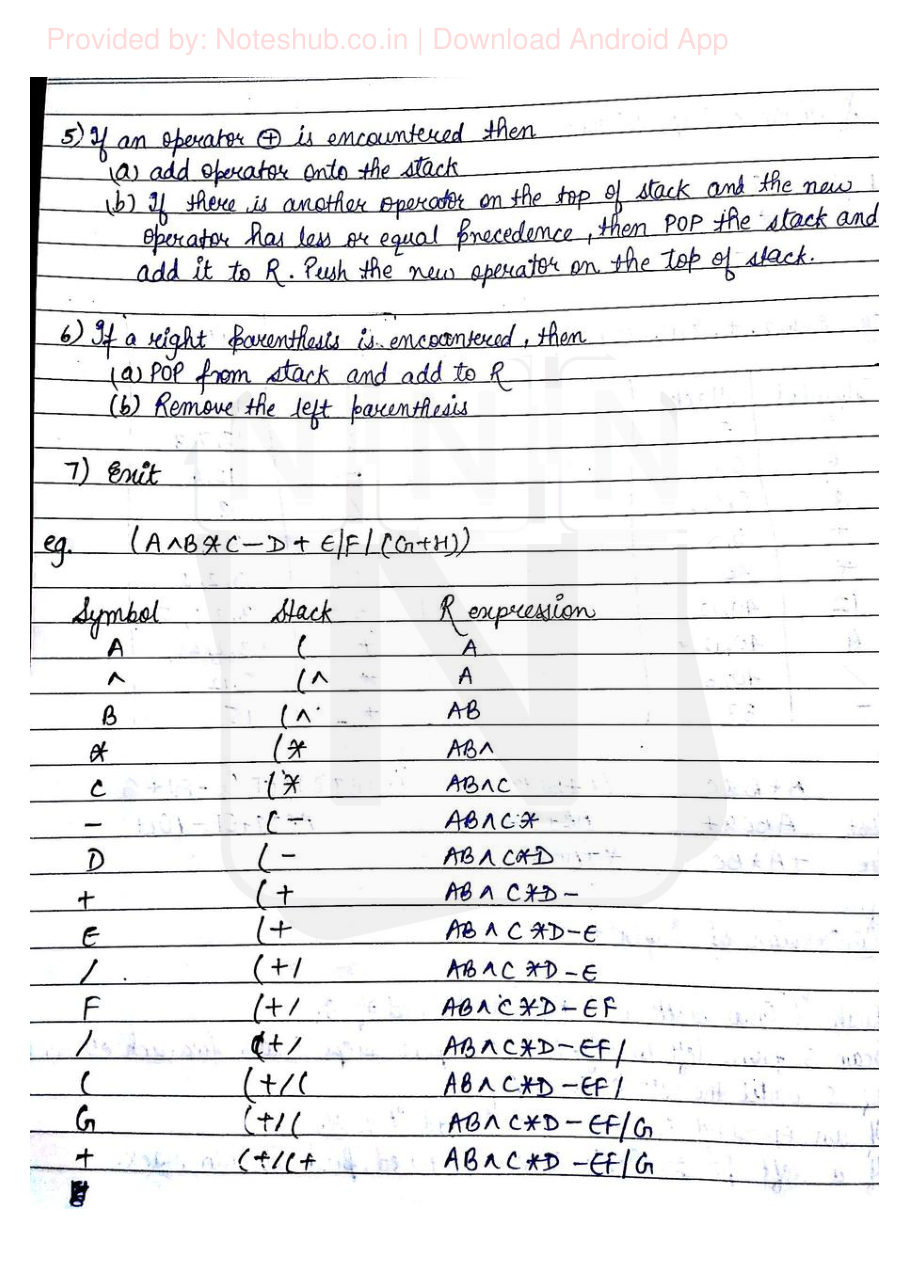 Provided by: Noteshub.co.in | Download Android App
5) If an operator ⊕ is encountered then
(a) add operator onto the stack
(b) If there is another operator on the top of stack and the new
operator has less or equal precedence, then POP the stack and
add it to R. Push the new operator on the top of stack.
6) If a right parenthesis is encountered, then
(a) POP from stack and add to R
(b) Remove the left parenthesis
7) Exit
eg. (A^B*C-D+E/F/(G+H))
Symbol Stack R expression
A ( A
^ (^ A
B (^ AB
* (* AB^
C (* AB^C
- (- AB^C*
D (- AB^C*D
+ (+ AB^C*D-
E (+ AB^C*D-E
/ (+/ AB^C*D-E
F (+/ AB^C*D-EF
/ (+/ AB^C*D-EF/
( (+/( AB^C*D-EF/
G (+/( AB^C*D-EF/G
+ (+/(+ AB^C*D-EF/G